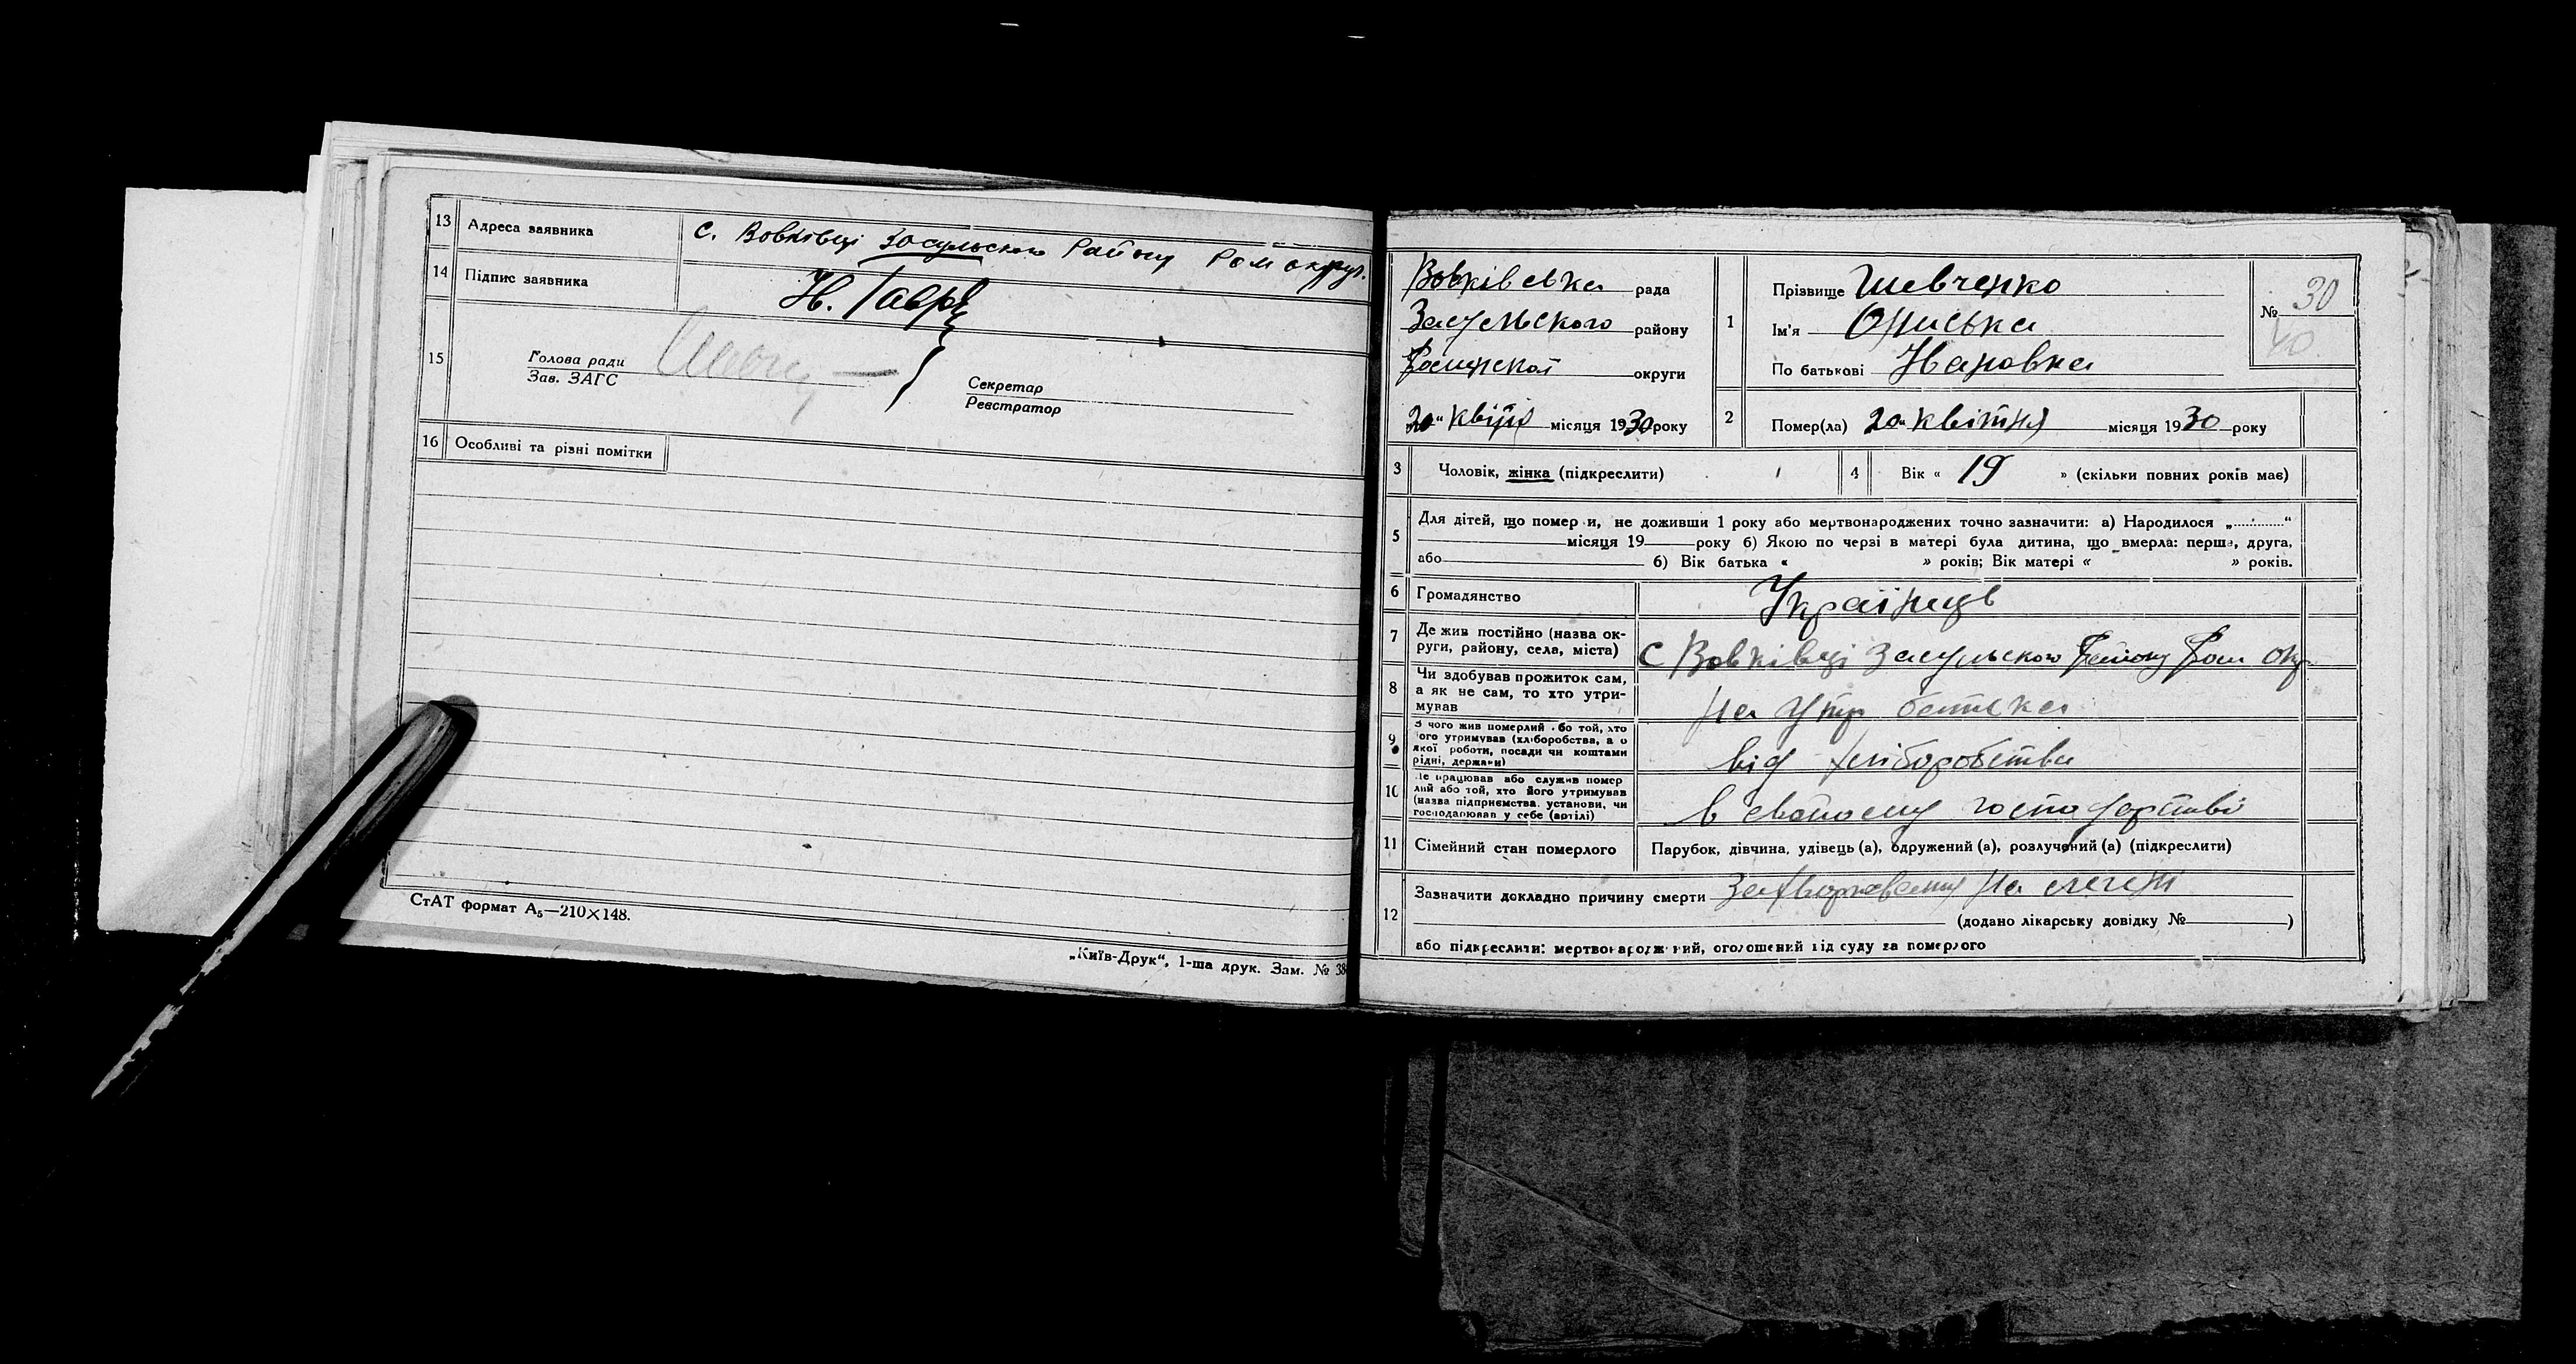 13 Адреса заявника С. Вовківці Засульського Району Ром округ.
14 Підпис заявника Н. Гавр
15 Голова ради
Зав. ЗАГС
Секретар
Реєстратор
16 Особливі та різні помітки
СтАТ формат А₅—210×148.
„Київ-Друк“, 1-ша друк. Зам. № 38
Вовківська рада
Засульського району
Роменської округи
„20“ квітн місяця 1930 року
1 Прізвище Шевченко
Ім'я Ониська
По батькові Ивановна
№ 30
40
2 Помер(ла) 20 „ квітня місяця 1930 року
3 Чоловік, жінка (підкреслити)
4 Вік « 19 » (скільки повних років має)
5 Для дітей, що помер и, не доживши 1 року або мертвонароджених точно зазначити: а) Народилося „............“
місяця 19 року б) Якою по черзі в матері була дитина, що вмерла: перша, друга,
або б) Вік батька « » років; Вік матері « » років.
6 Громадянство Україньців
7 Де жив постійно (назва ок-
руги, району, села, міста) С Вовківці Засульського Району Ром окр
8 Чи здобував прожиток сам,
а як не сам, то хто утри-
мував На утр батька
9 З чого жив померлий або той, хто
його утримував (хліборобства, а о
якої роботи, посади чи коштами
рідні, держави) від хліборобства
10 Де працював або служив помер
лий або той, хто його утримував
(назва підприємства, установи, чи
господарював у себе (артілі) в своїому господарстві
11 Сімейний стан померлого Парубок, дівчина, удівець (а), одружений (а), розлучений (а) (підкреслити)
12 Зазначити докладно причину смерти Захворювання на легені
(додано лікарську довідку № )
або підкреслити: мертвонароджений, оголошений від суду за померлого